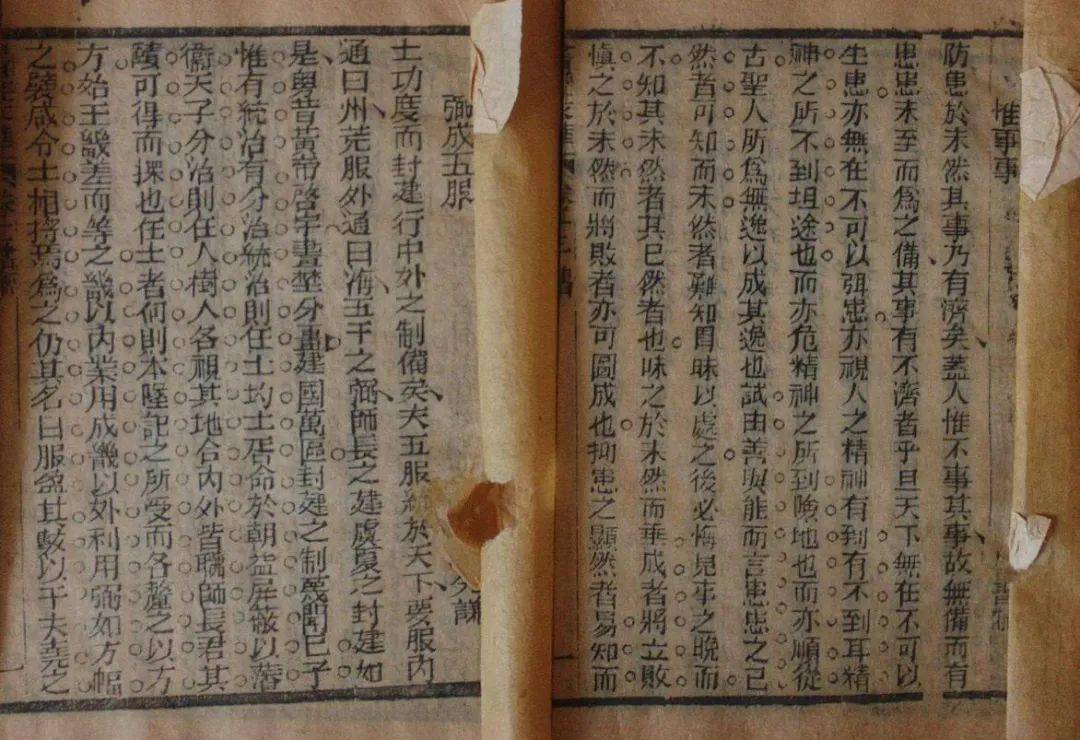 惟事事
防患於未然其事乃有濟矣蓋人惟不事其事故無備而有
患患未至而爲之備其事有不濟者乎且天下無在不可以
生患亦無在不可以弭患亦視人之精神有到有不到耳精
神之所不到坦途也而亦危精神之所到險地也而亦順從
古聖人所爲無逸以成其逸也試由善與能而言患患之已
然者可知而未然者難知冐昧以處之後必悔見事之晩而
不知其未然者其已然者也昧之於未然而垂成者將立敗
愼之於未然而將敗者亦可圖成也抑患之顯然者易知而
弼成五服
土功度而封建行中外之制備矣夫五服統於天下要服內
通曰州荒服外通曰海五千之弼師長之建虞夏之封建如
是與昔黃帝啓宇畫埜分畺建國萬區封建之制蔑聞已予
惟有統治有分治統治則任土均土胥命於朝益屏蔽以藩
衞天子分治則任人樹人各視其地合內外皆職師長君其
賾可得而揲也在土者何則本墜記之所受而各釐之以方
方始王畿差而等之畿以內業用成畿以外利用弼如方幅
之襞咸令土相捊焉爲之仍其名曰服盈其數以千夫堯之